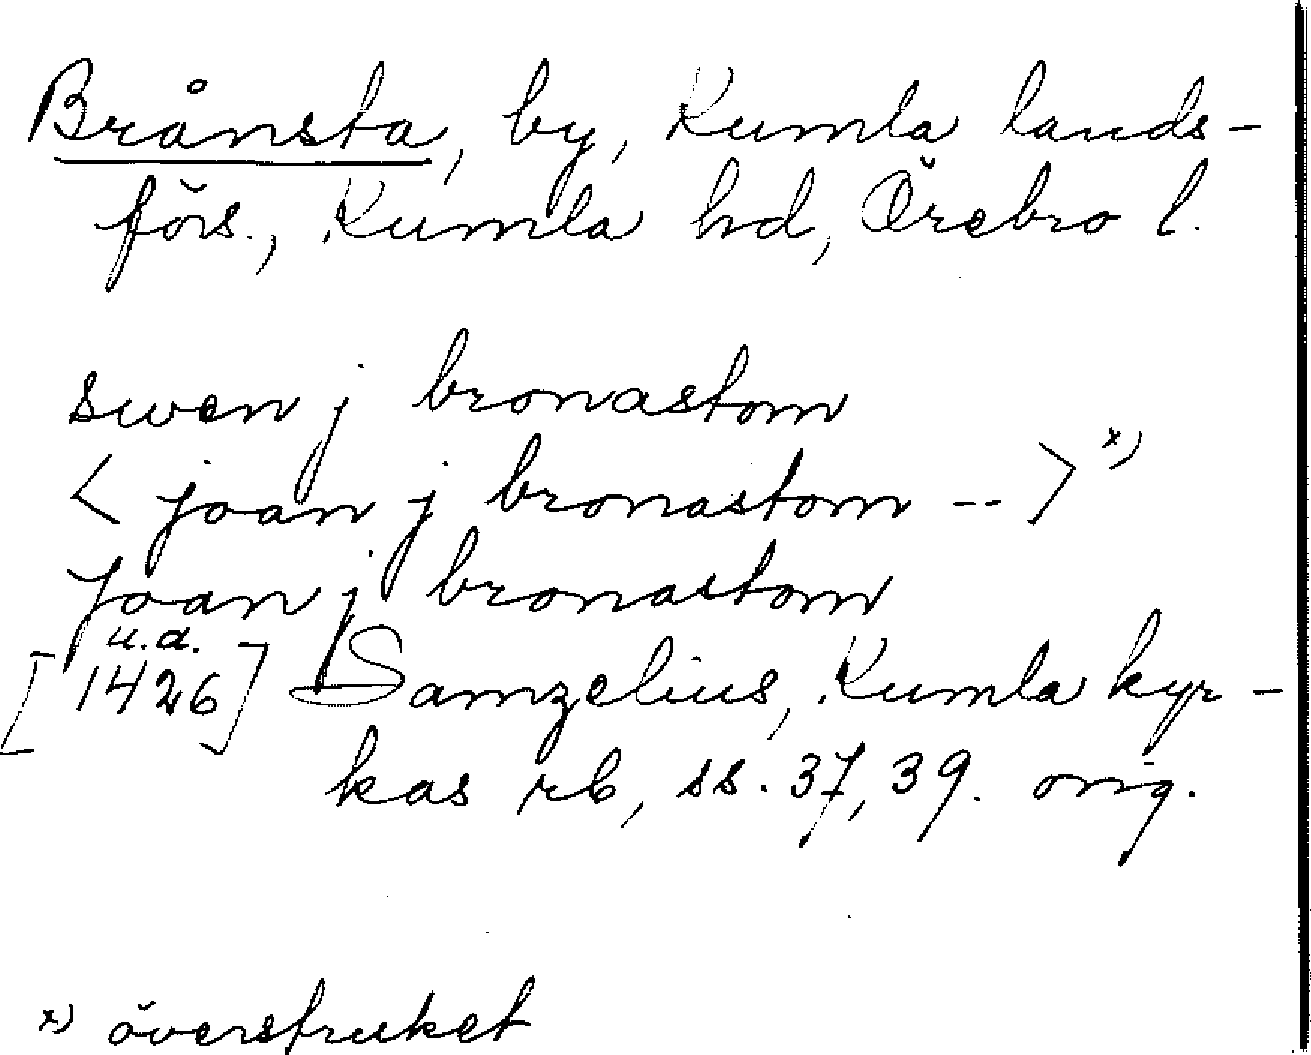 Brånsta, by, Kumla lands-
förs., Kumla hd, Örebro l.
swen j bronastom
< joan j bronastom -- > x)
Joan j bronastom
u.a.
[1426] Samzelius, Kumla kyr-
kas rb, ss. 37, 39. orig.
x) överstruket